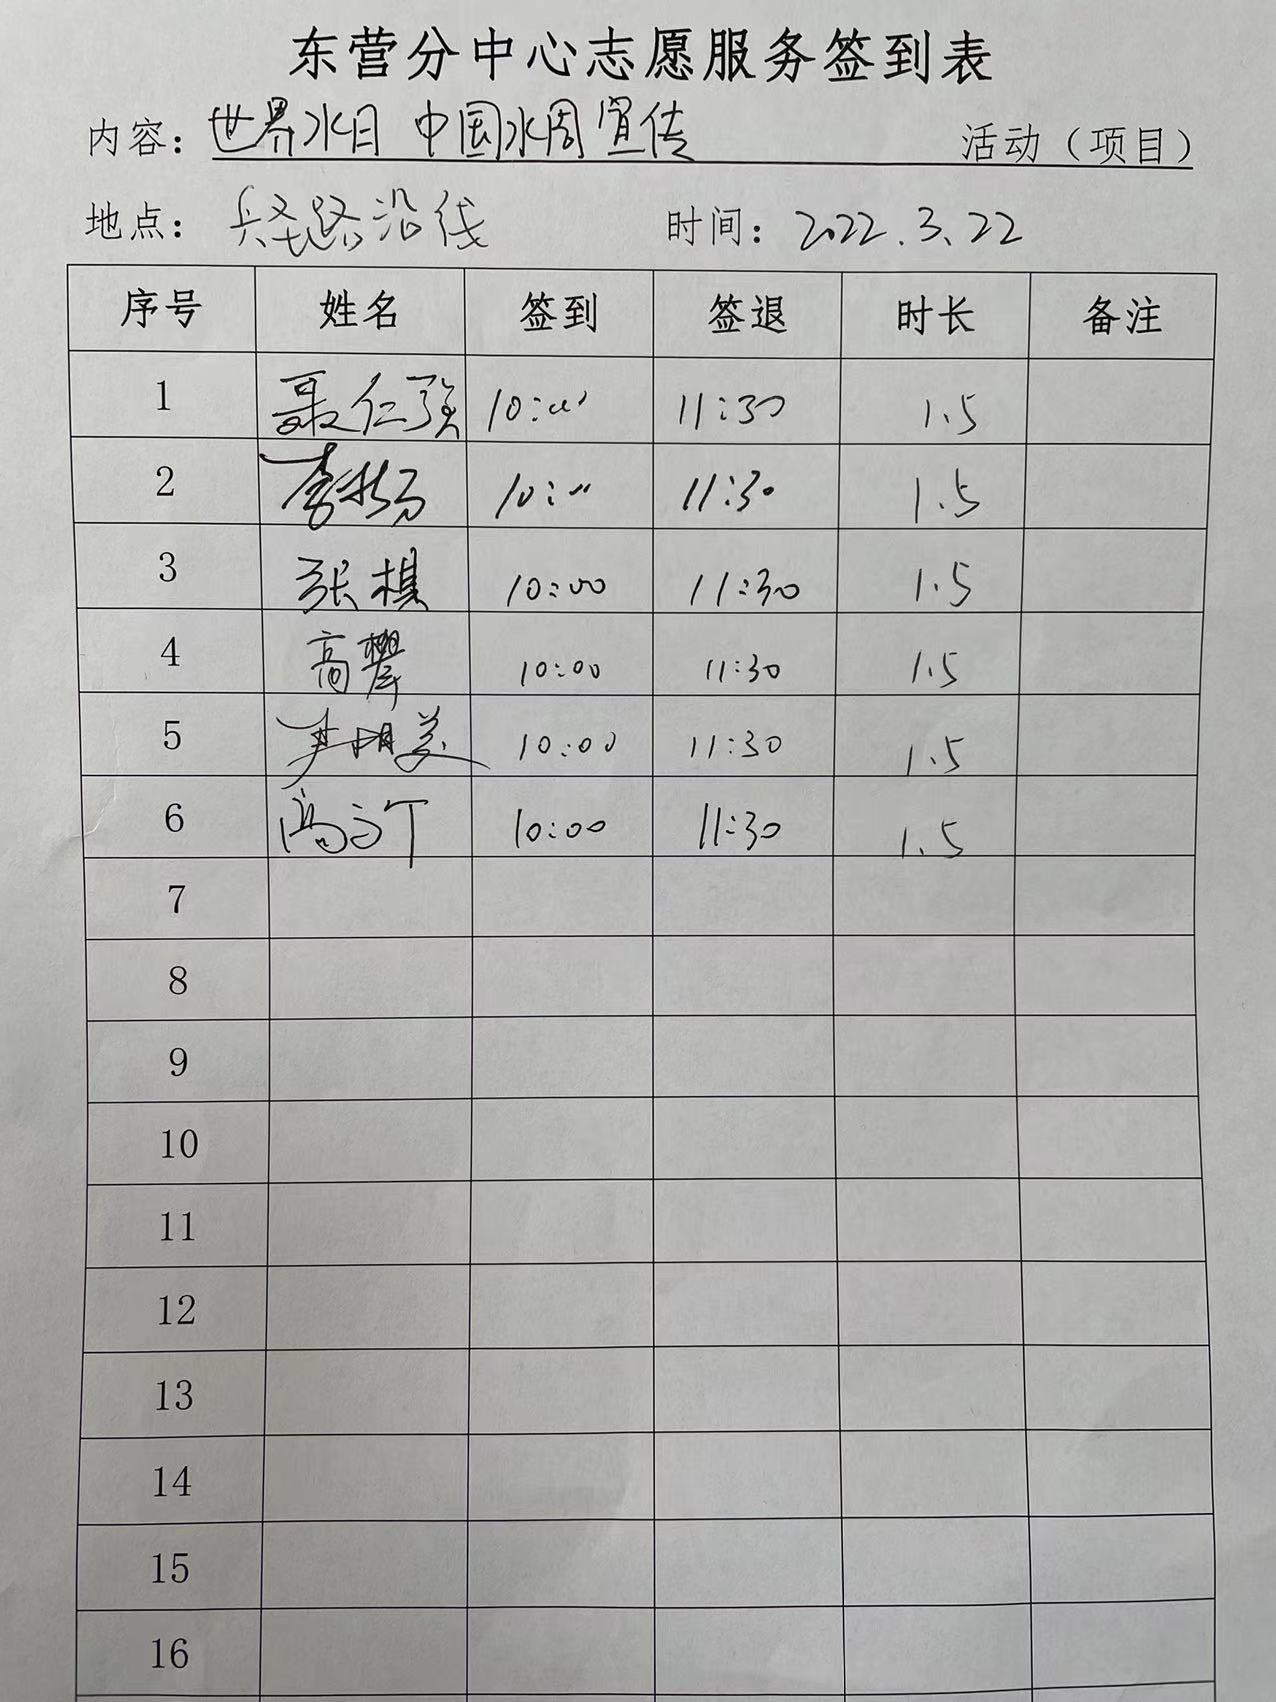 东营分中心志愿服务签到表
内容：世界水日 中国水周宣传 活动（项目）
地点：兵圣路沿线 时间：2022.3.22
序号 姓名 签到 签退 时长 备注
1 聂仁强 10:00 11:30 1.5
2 李 10:00 11:30 1.5
3 张棋 10:00 11:30 1.5
4 高攀 10:00 11:30 1.5
5 尹明美 10:00 11:30 1.5
6 高 10:00 11:30 1.5
7
8
9
10
11
12
13
14
15
16